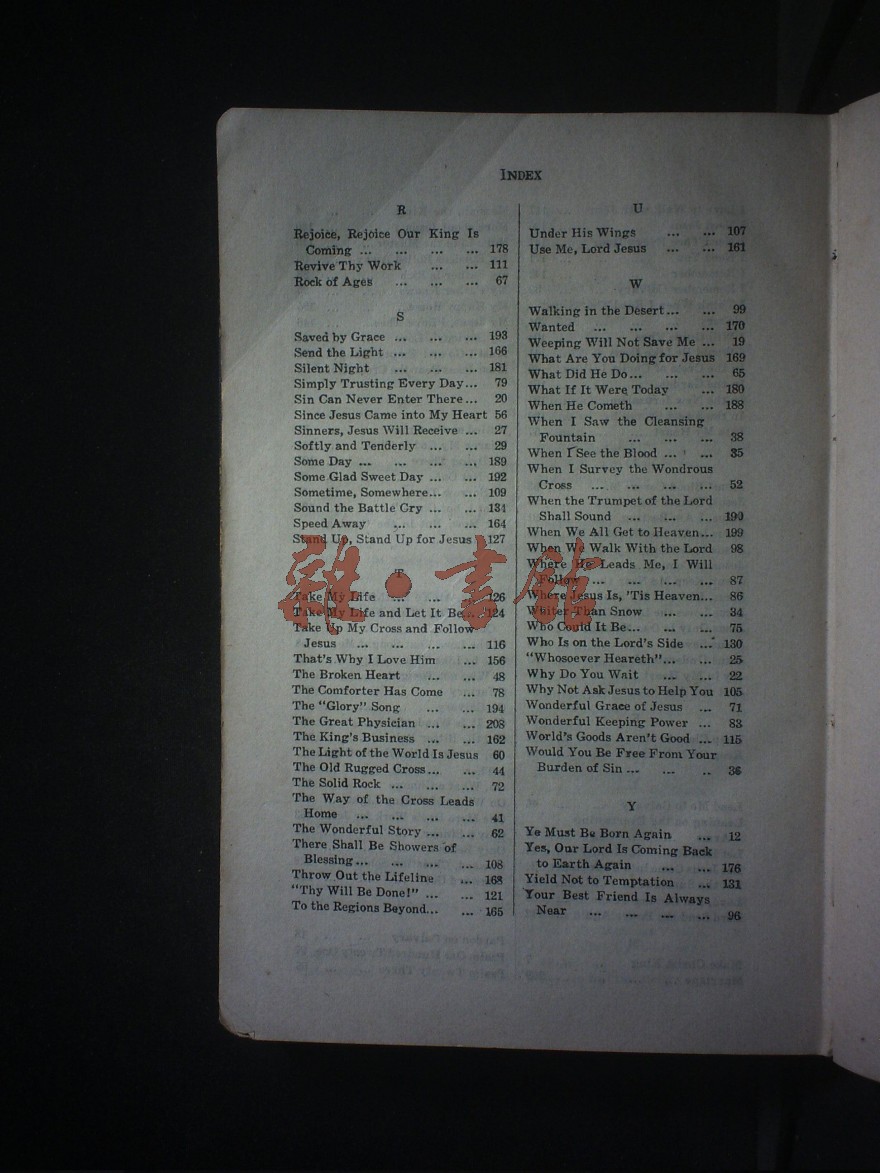 INDEX
R
Rejoice, Rejoice Our King Is
Coming ... ... ... ... 178
Revive Thy Work ... ... 111
Rock of Ages ... ... ... 67
S
Saved by Grace ... ... ... 193
Send the Light ... ... ... 166
Silent Night ... ... ... 181
Simply Trusting Every Day... 79
Sin Can Never Enter There... 20
Since Jesus Came into My Heart 56
Sinners, Jesus Will Receive ... 27
Softly and Tenderly ... ... 29
Some Day ... ... ... ... 189
Some Glad Sweet Day ... ... 192
Sometime, Somewhere... ... 109
Sound the Battle Cry ... ... 134
Speed Away ... ... ... 164
Stand Up, Stand Up for Jesus 127
T
Take My Life ... ... ... 126
Take My Life and Let It Be... 124
Take Up My Cross and Follow
Jesus ... ... ... ... 116
That's Why I Love Him ... 156
The Broken Heart ... ... 48
The Comforter Has Come ... 78
The "Glory" Song ... ... 194
The Great Physician ... ... 208
The King's Business ... ... 162
The Light of the World Is Jesus 60
The Old Rugged Cross... ... 44
The Solid Rock ... ... ... 72
The Way of the Cross Leads
Home ... ... ... ... 41
The Wonderful Story ... ... 62
There Shall Be Showers of
Blessing... ... ... ... 108
Throw Out the Lifeline ... 168
"Thy Will Be Done!" ... ... 121
To the Regions Beyond... ... 165
U
Under His Wings ... ... 107
Use Me, Lord Jesus ... ... 161
W
Walking in the Desert... ... 99
Wanted ... ... ... ... 170
Weeping Will Not Save Me ... 19
What Are You Doing for Jesus 169
What Did He Do... ... ... 65
What If It Were Today ... 180
When He Cometh ... ... 188
When I Saw the Cleansing
Fountain ... ... ... 38
When I See the Blood ... ... 35
When I Survey the Wondrous
Cross ... ... ... ... 52
When the Trumpet of the Lord
Shall Sound ... ... ... 190
When We All Get to Heaven... 199
When We Walk With the Lord 98
Where He Leads Me, I Will
Follow ... ... ... ... 87
Where Jesus Is, 'Tis Heaven... 86
Whiter Than Snow ... ... 34
Who Could It Be... ... ... 75
Who Is on the Lord's Side ... 130
"Whosoever Heareth"... ... 25
Why Do You Wait ... ... 22
Why Not Ask Jesus to Help You 105
Wonderful Grace of Jesus ... 71
Wonderful Keeping Power ... 83
World's Goods Aren't Good ... 115
Would You Be Free From Your
Burden of Sin ... ... .. 36
Y
Ye Must Be Born Again ... 12
Yes, Our Lord Is Coming Back
to Earth Again ... ... 176
Yield Not to Temptation ... 131
Your Best Friend Is Always
Near ... ... ... ... 96
雜·書館